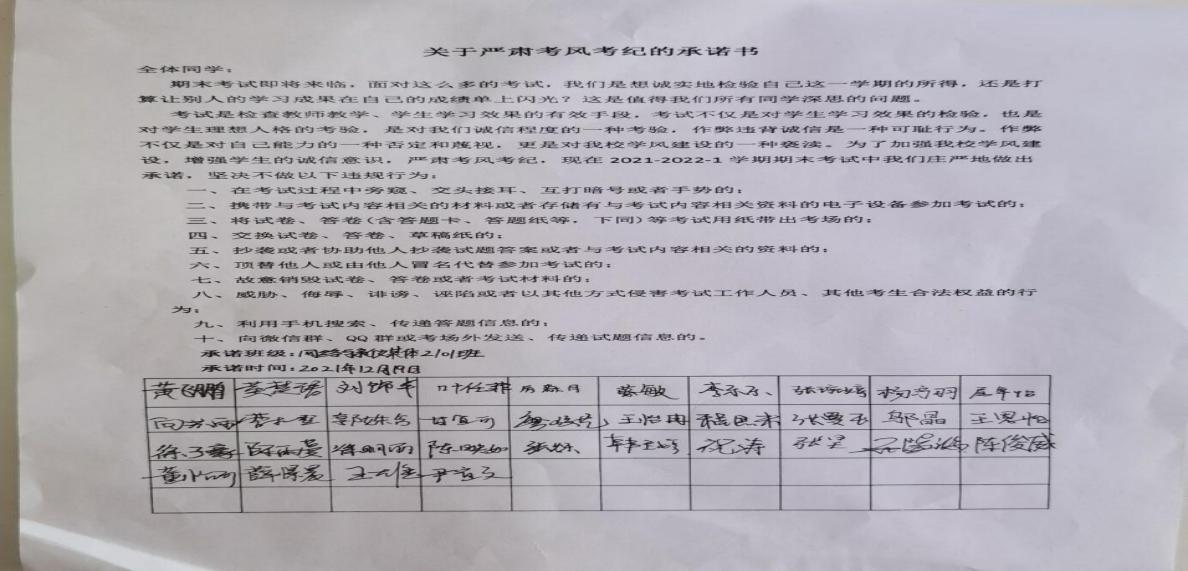 关于严肃考风考纪的承诺书
全体同学：
期末考试即将来临，面对这么多的考试，我们是想诚实地检验自己这一学期的所得，还是打
算让别人的学习成果在自己的成绩单上闪光？这是值得我们所有同学深思的问题。
考试是检查教师教学、学生学习效果的有效手段，考试不仅是对学生学习效果的检验，也是
对学生理想人格的考验，是对我们诚信程度的一种考验，作弊违背诚信是一种可耻行为。作弊
不仅是对自己能力的一种否定和蔑视，更是对我校学风建设的一种亵渎。为了加强我校学风建
设，增强学生的诚信意识，严肃考风考纪，现在 2021-2022-1 学期期末考试中我们庄严地做出
承诺，坚决不做以下违规行为：
一、在考试过程中旁窥、交头接耳、互打暗号或者手势的；
二、携带与考试内容相关的材料或者存储有与考试内容相关资料的电子设备参加考试的；
三、将试卷、答卷（含答题卡、答题纸等，下同）等考试用纸带出考场的；
四、交换试卷、答卷、草稿纸的；
五、抄袭或者协助他人抄袭试题答案或者与考试内容相关的资料的；
六、顶替他人或由他人冒名代替参加考试的；
七、故意销毁试卷、答卷或者考试材料的；
八、威胁、侮辱、诽谤、诬陷或者以其他方式侵害考试工作人员、其他考生合法权益的行
为；
九、利用手机搜索、传递答题信息的；
十、向微信群、QQ 群或考场外发送、传递试题信息的。
承诺班级：网络与新媒体2101班
承诺时间：2021年12月19日
黄飞鹏 叶任菲 蔡敏
王怡冉 邬晶 王思怡
祝涛 陈俊威